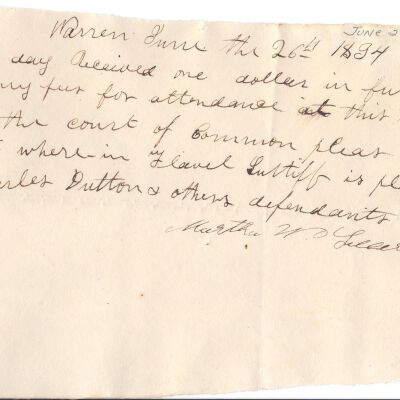 JUNE 2
Warren June the 26th 1834
day Received one dollar in fu
my fees for attendance at this
the court of Common pleas
where-in Flavel Sutliff is pl
arles Dutton & others defendants
Martha W